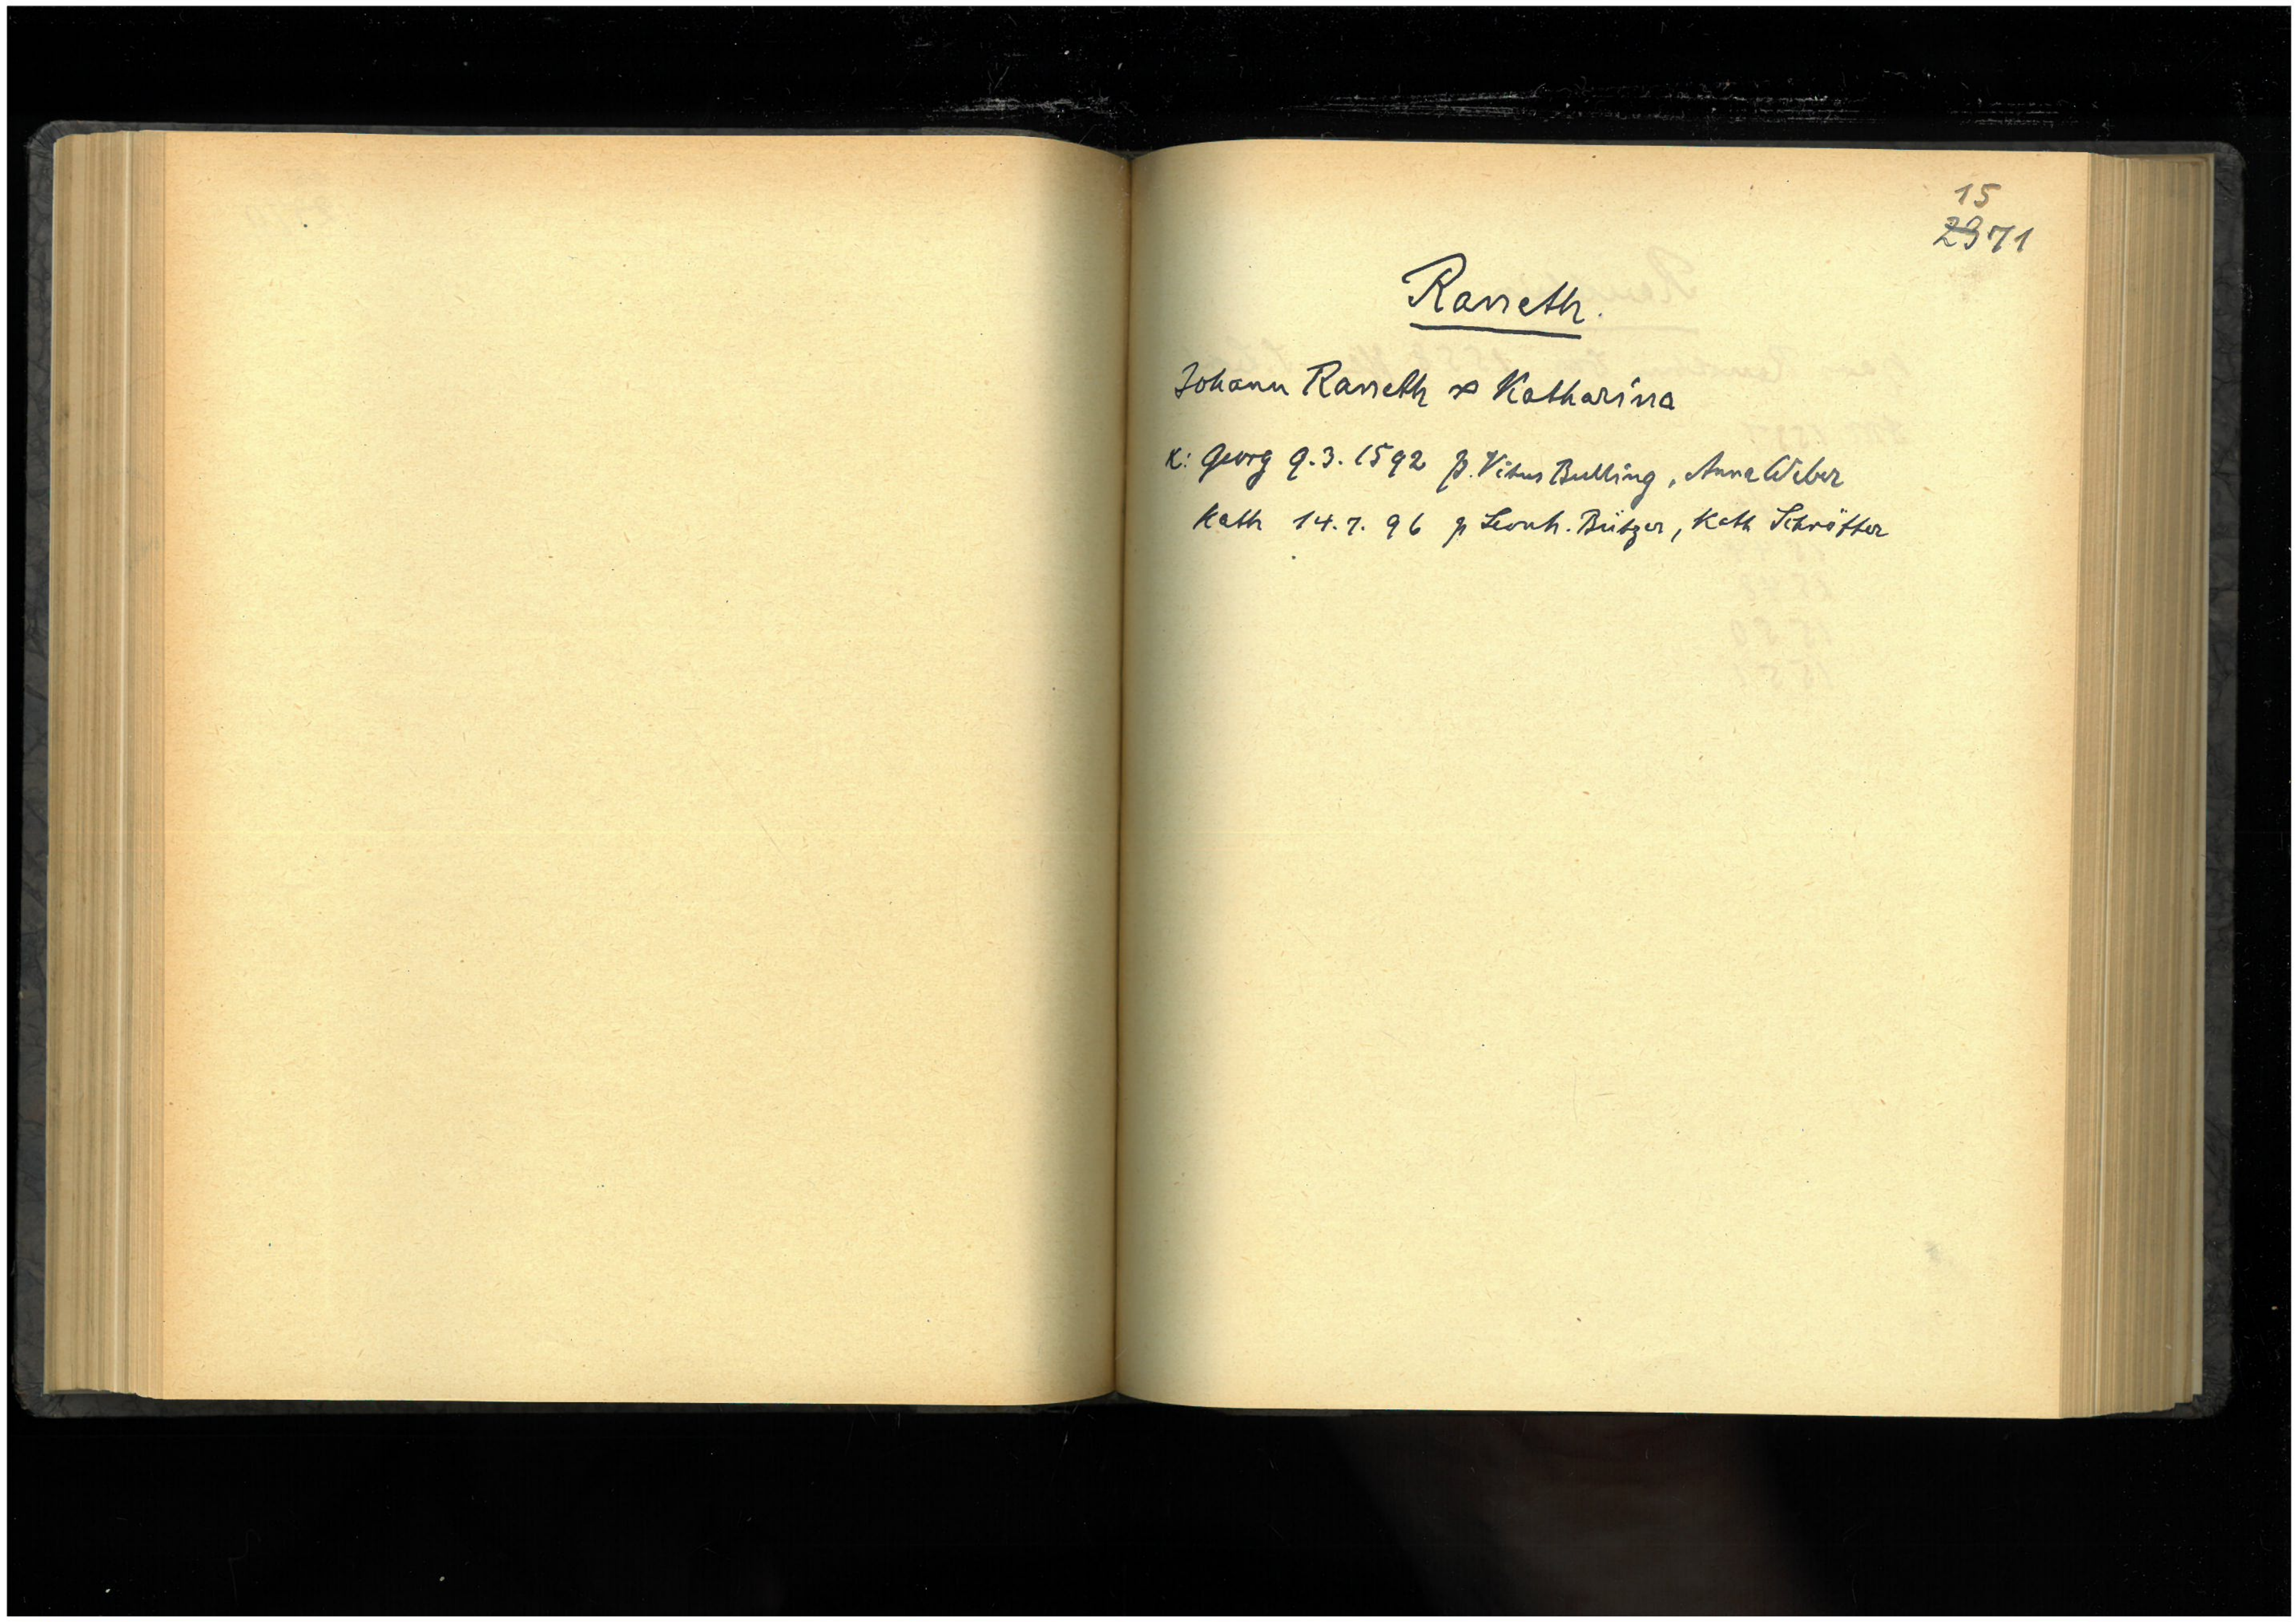 15
2971
Ranreth.
Johann Ranreth ⚭ Katharina
K: Georg 9.3.1592 p. Vitus Bulling, Anna Weber
Kath 14.7.96 p Leonh. Bützer, Kath Schrötter